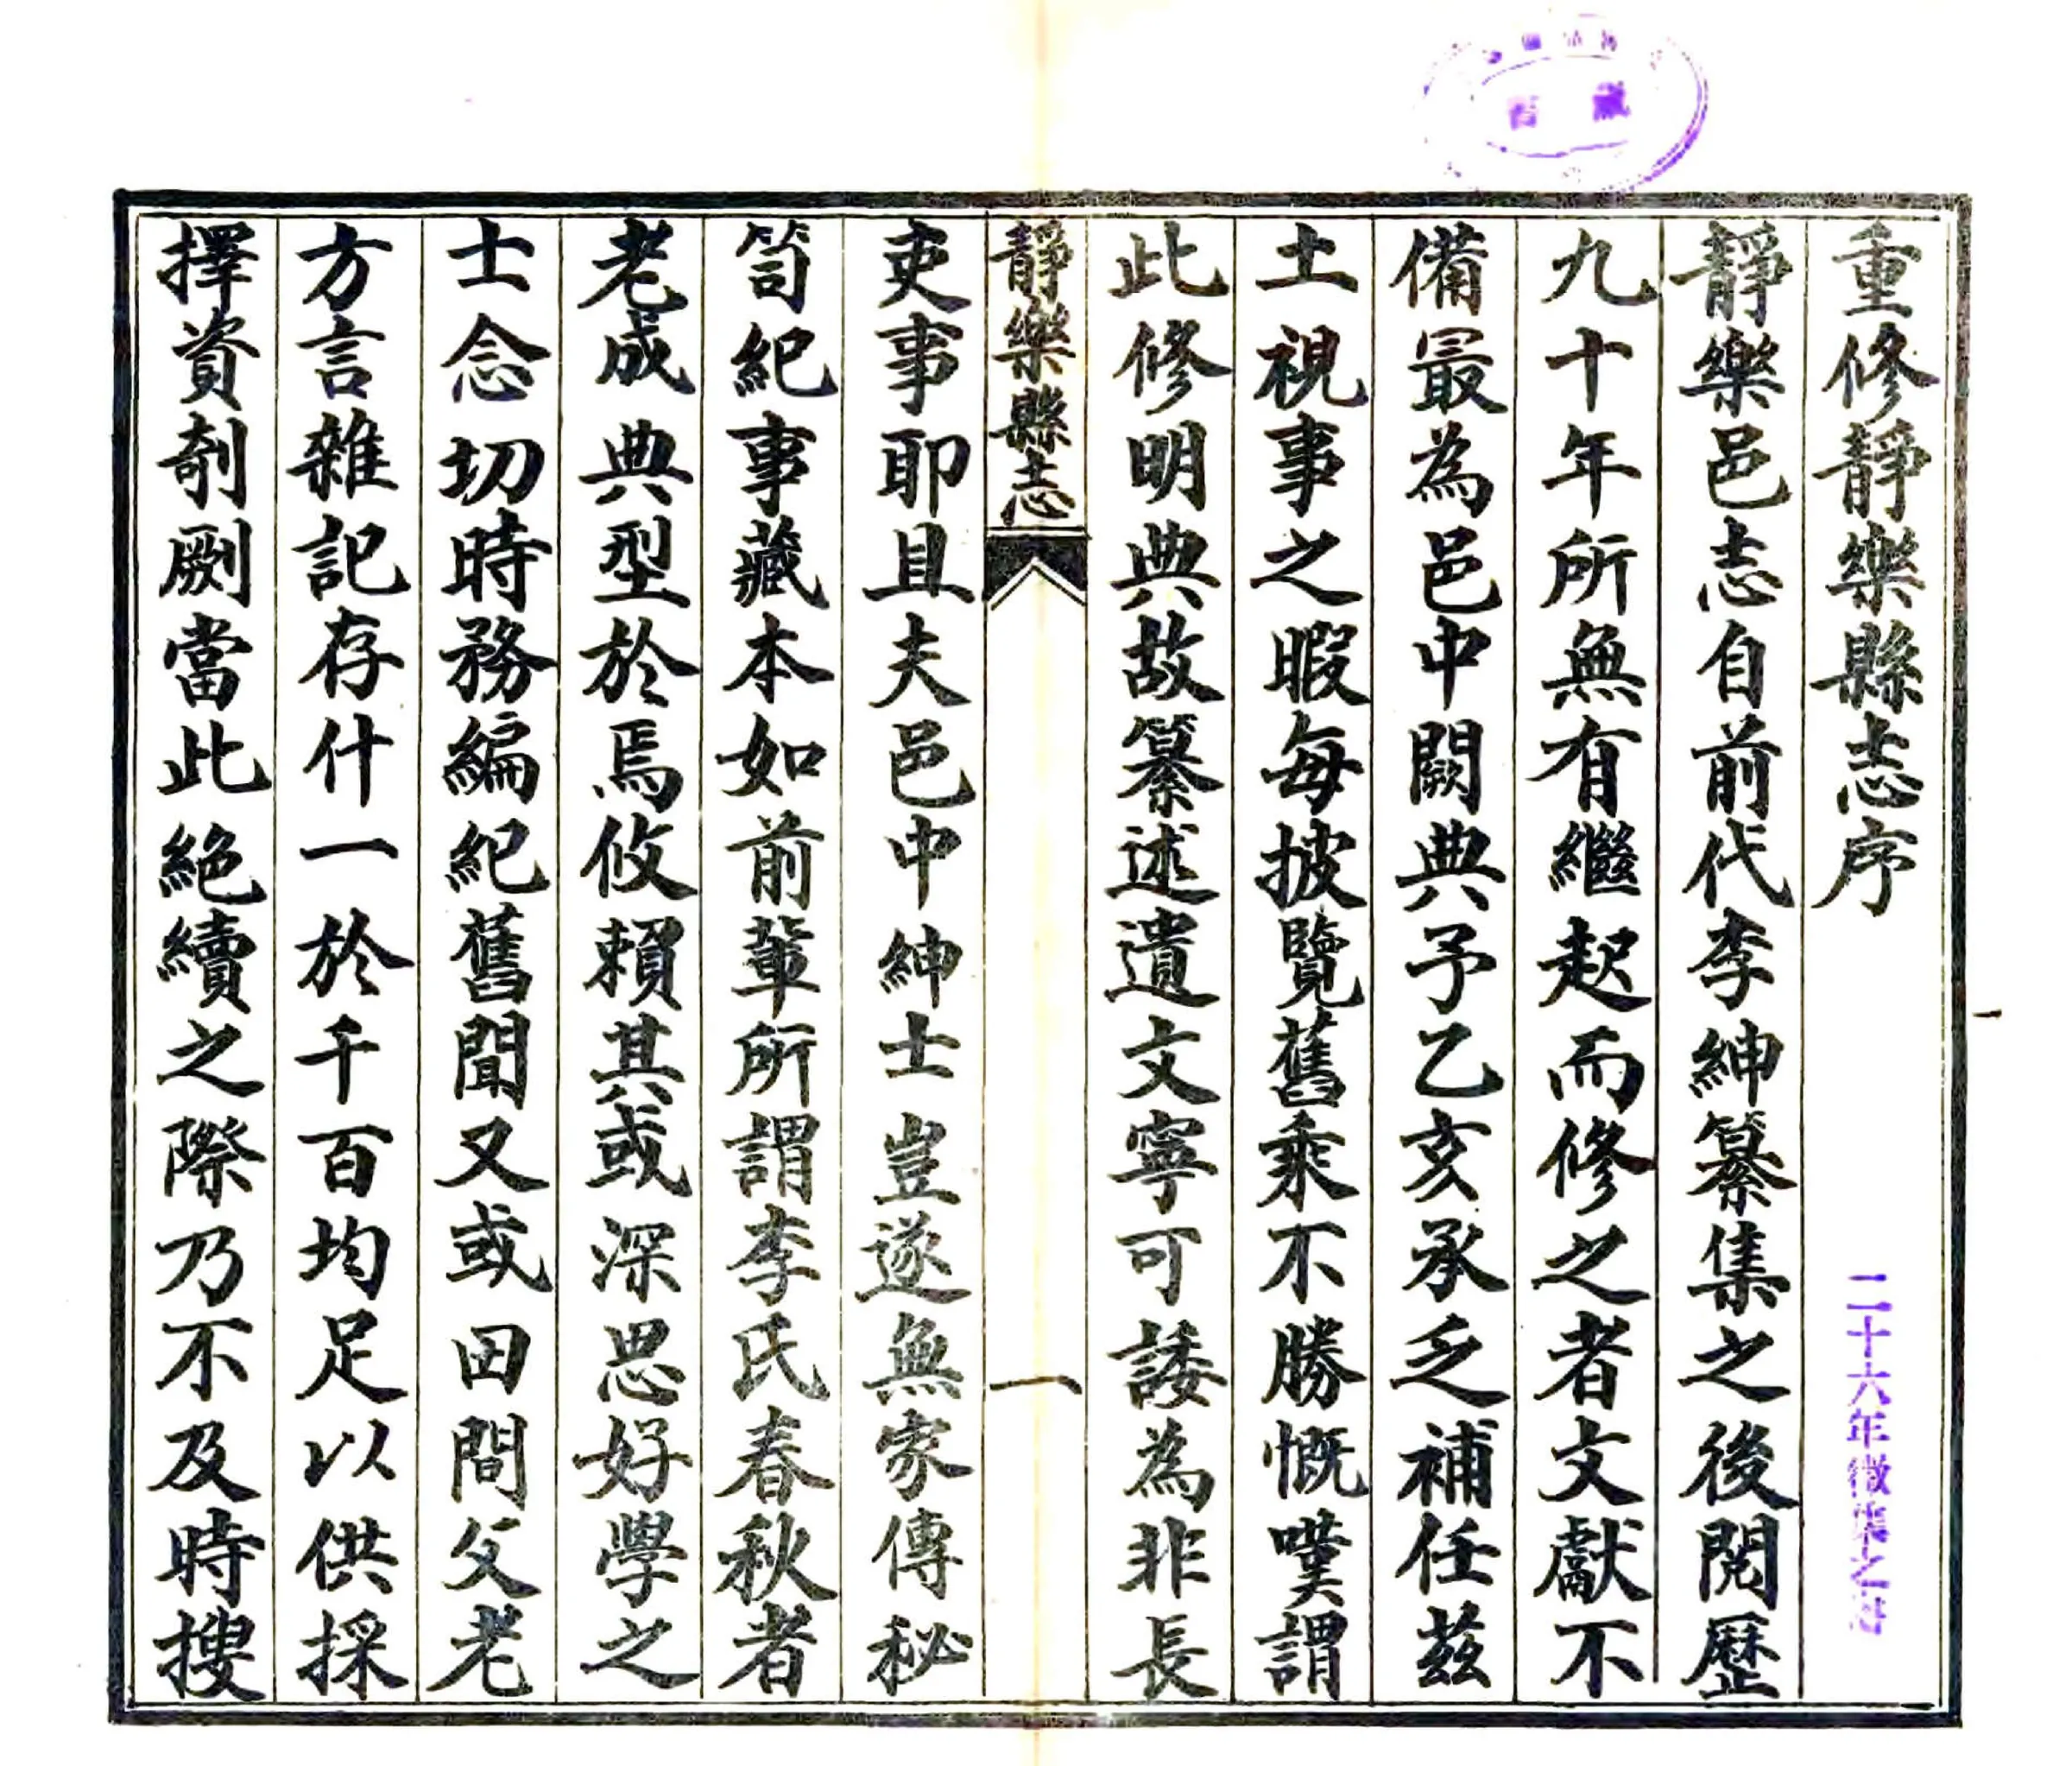 重修靜樂縣志序
靜樂邑志自前代李紳纂集之後閱歷
九十年所無有繼起而修之者文獻不
備最為邑中闕典予乙亥承乏補任茲
土視事之暇每披覽舊乘不勝慨嘆謂
此修明典故纂述遺文寧可諉為非長
吏事耶且夫邑中紳士豈遂無家傳秘
笥紀事藏本如前輩所謂李氏春秋者
老成典型於焉攸賴其或深思好學之
士念切時務編紀舊聞又或田間父老
方言雜記存什一於千百均足以供採
擇資剞劂當此絕續之際乃不及時搜
靜樂縣志
一
二十六年徵集之
藏書